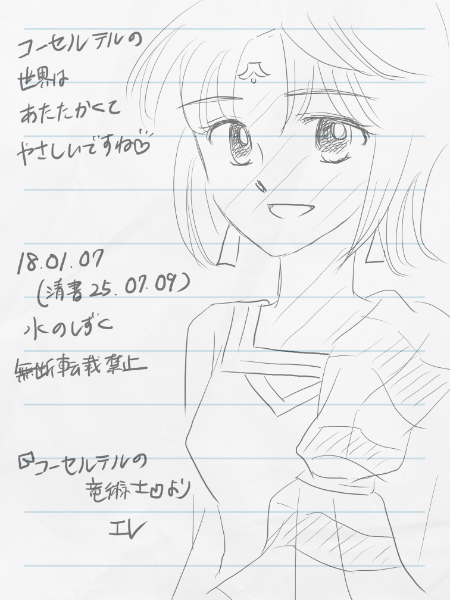 コーセルテルの
世界は
あたたかくて
やさしいですね♡
18.01.07
(清書25.07.09)
水のしずく
無断転載禁止
コーセルテルの
竜術士より
エレ